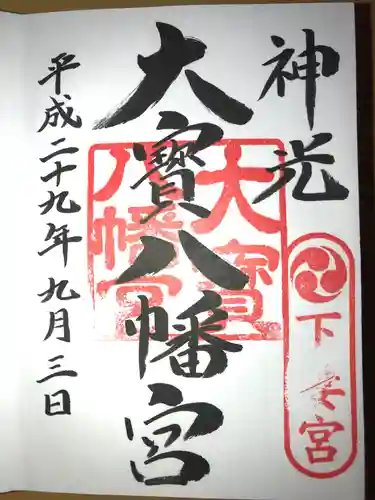 神光
下妻宮
大寳八幡宮
大寶八幡宮
平成二十九年九月三日